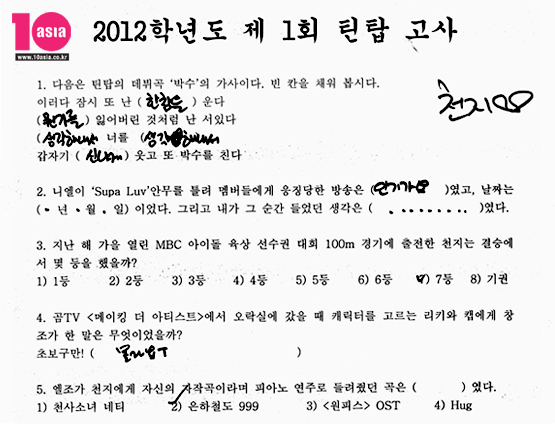 10 asia
www.10asia.co.kr
2012학년도 제 1회 틴탑 고사
천지
1. 다음은 틴탑의 데뷔곡 '박수'의 가사이다. 빈 칸을 채워 봅시다.
이러다 잠시 또 난 ( 한참을 ) 운다
( 뭔가를 ) 잃어버린 것처럼 난 서있다
( ) 너를 ( )
갑자기 ( ) 웃고 또 박수를 친다
2. 니엘이 'Supa Luv'안무를 틀려 멤버들에게 응징당한 방송은 ( 인기가요 )였고, 날짜는
( · 년 · 월 · 일) 이었다. 그리고 내가 그 순간 들었던 생각은 ( . . . . . . . . )였다.
3. 지난 해 가을 열린 MBC 아이돌 육상 선수권 대회 100m 경기에 출전한 천지는 결승에
서 몇 등을 했을까?
1) 1등 2) 2등 3) 3등 4) 4등 5) 5등 6) 6등 7) 7등 8) 기권
4. 곰TV <메이킹 더 아티스트>에서 오락실에 갔을 때 캐릭터를 고르는 리키와 캡에게 창
조가 한 말은 무엇이었을까?
초보구만! ( )
5. 엘조가 천지에게 자신의 자작곡이라며 피아노 연주로 들려줬던 곡은 ( ) 였다.
1) 천사소녀 네티 2) 은하철도 999 3) <원피스> OST 4) Hug